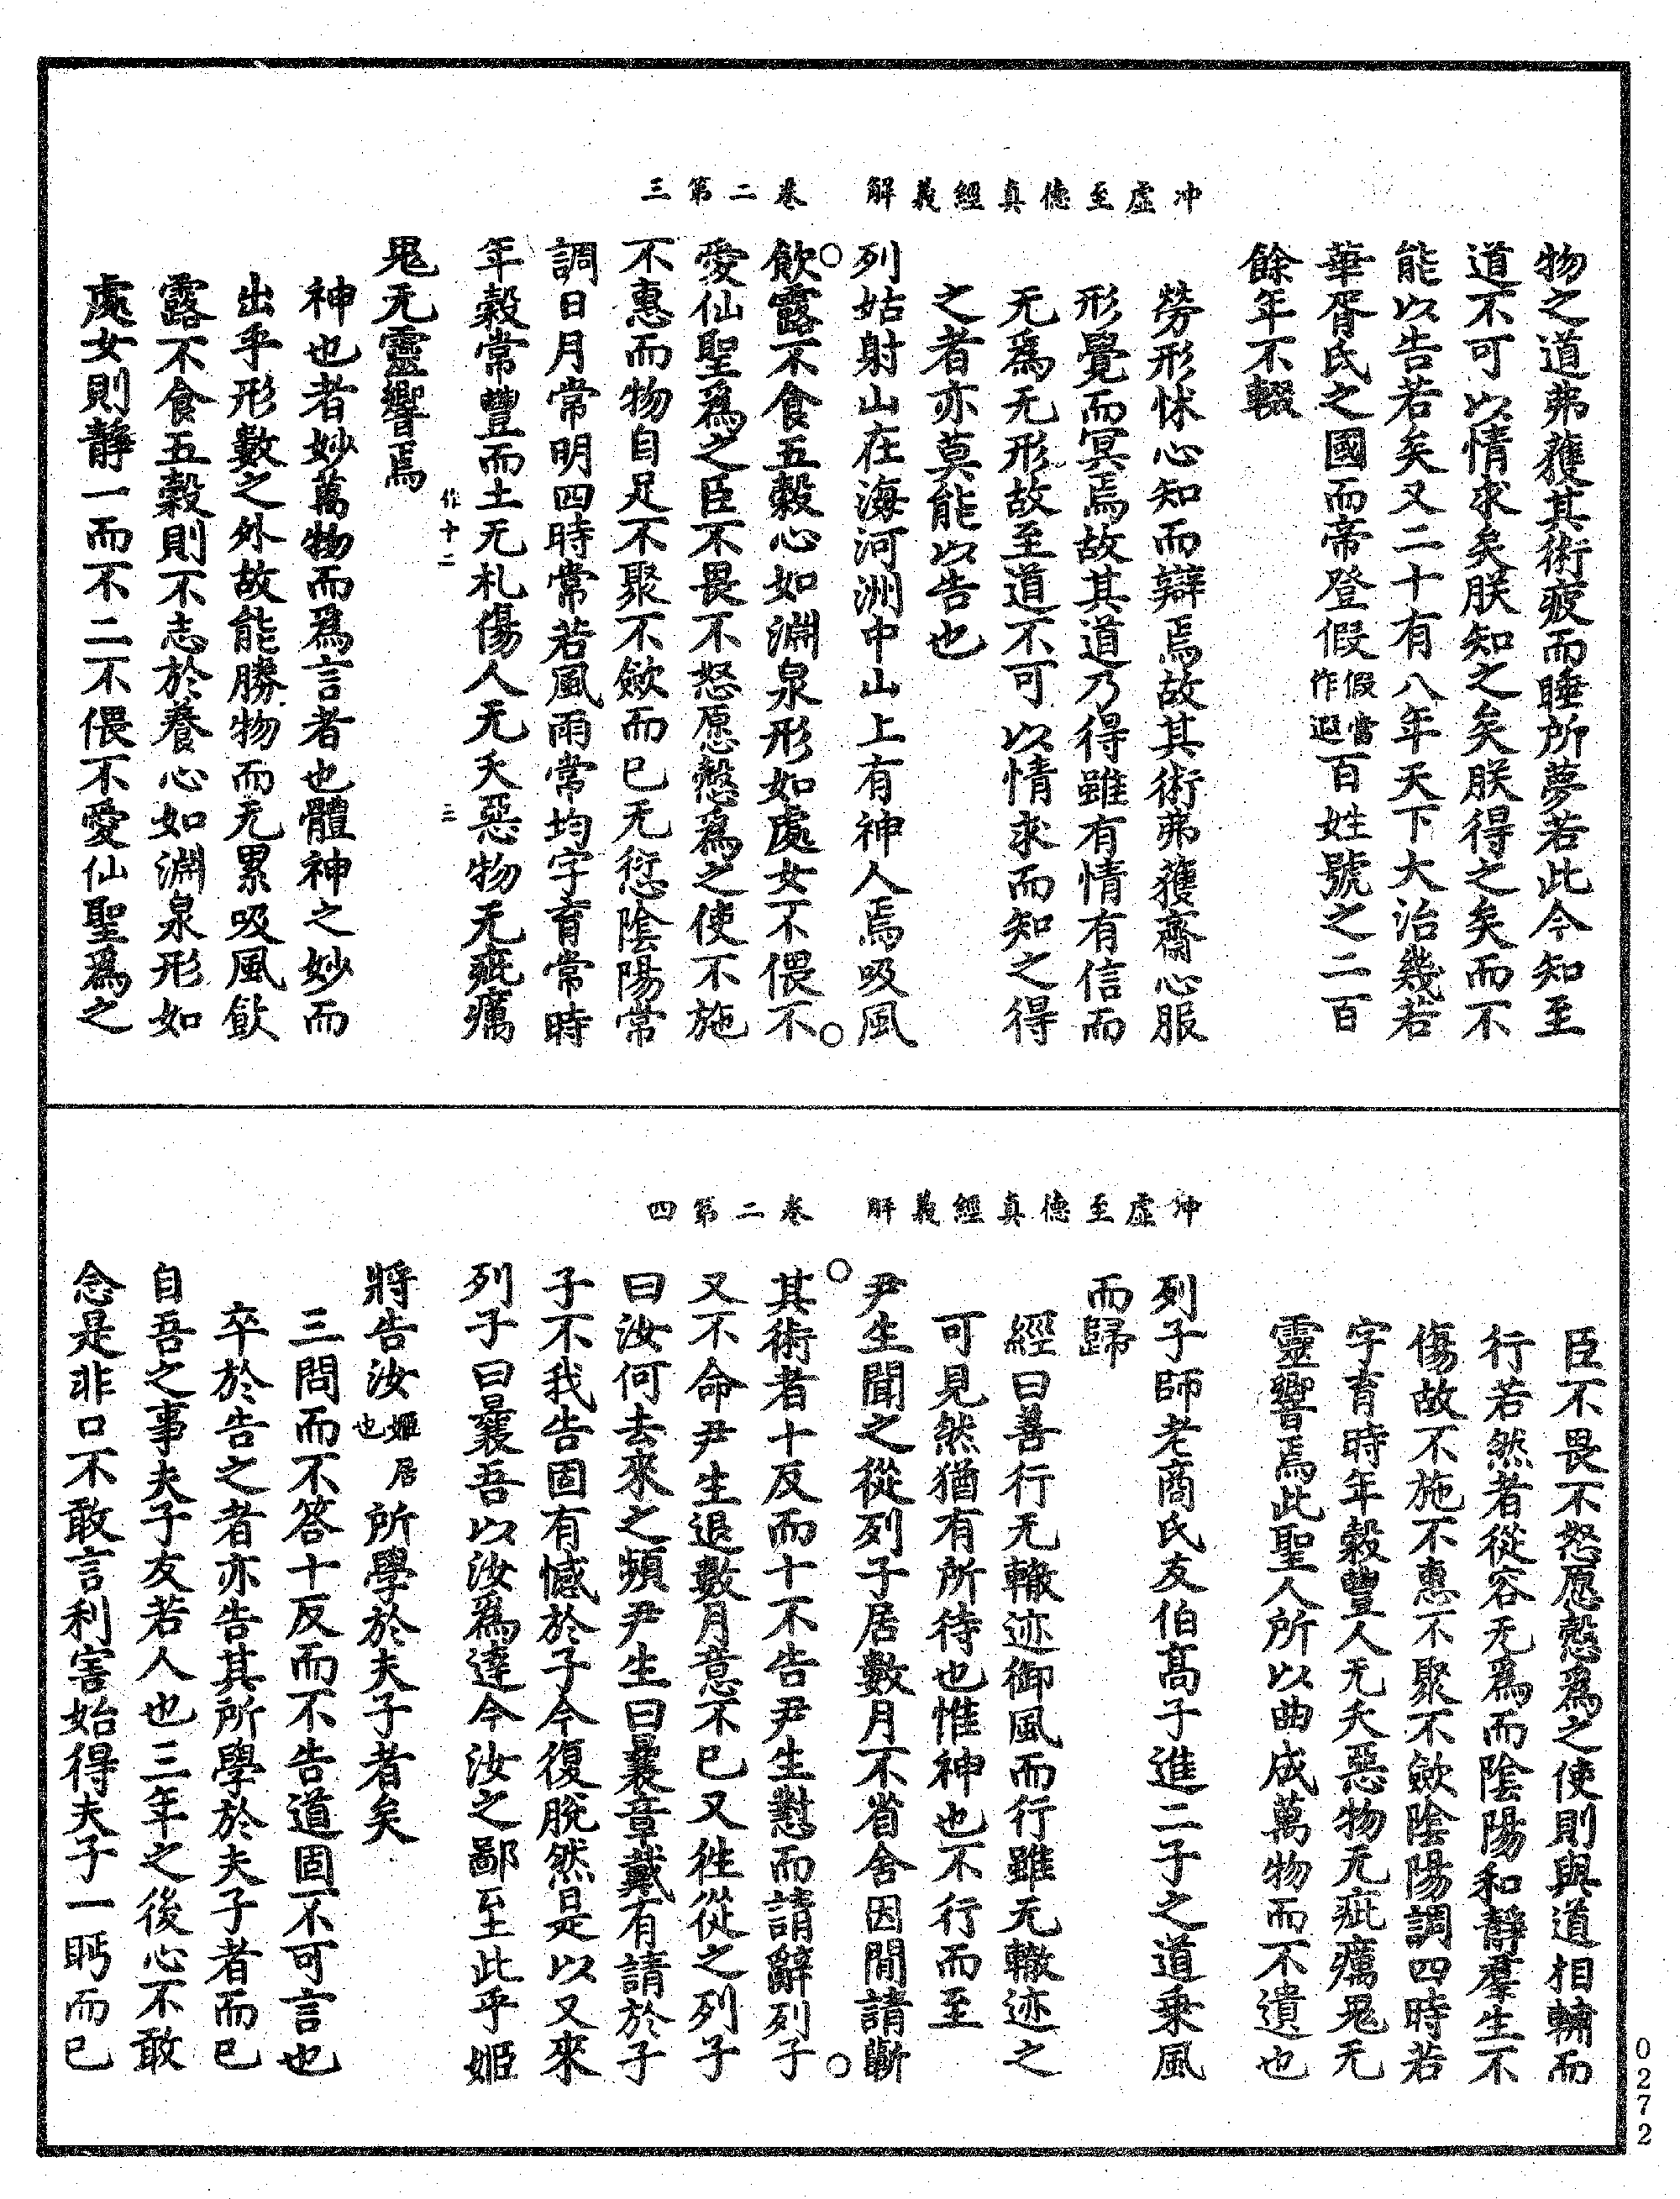 冲虛至德真經義解　卷二第三
物之道弗獲其術疲而睡所夢若此今知至
道不可以情求矣朕知之矣朕得之矣而不
能以告若矣又二十有八年天下大治幾若
華胥氏之國而帝登假假當作遐百姓號之二百
餘年不輟
勞形怵心知而辯焉故其術弗獲齋心服
形覺而冥焉故其道乃得雖有情有信而
无爲无形故至道不可以情求而知之得
之者亦莫能以告也
列姑射山在海河洲中山上有神人焉吸風
飲露不食五穀心如淵泉形如處女不偎不
愛仙聖爲之臣不畏不怒愿慤爲之使不施
不惠而物自足不聚不歛而已无愆陰陽常
調日月常明四時常若風雨常均字育常時
年穀常豐而土无札傷人无夭惡物无疵癘
作十二　三
鬼无靈響焉
神也者妙萬物而爲言者也體神之妙而
出乎形數之外故能勝物而无累吸風飲
露不食五穀則不志於養心如淵泉形如
處女則靜一而不二不偎不愛仙聖爲之
冲虛至德真經義解　卷二第四
臣不畏不怒愿慤爲之使則與道相輔而
行若然者從容无爲而陰陽和靜羣生不
傷故不施不惠不聚不歛陰陽調四時若
字育時年穀豐人无夭惡物无疵癘鬼无
靈響焉此聖人所以曲成萬物而不遺也
列子師老商氏友伯高子進二子之道乗風
而歸
經曰善行无轍迹御風而行雖无轍迹之
可見然猶有所待也惟神也不行而至
尹生聞之從列子居數月不省舍因閒請蘄
其術者十反而十不告尹生懟而請辭列子
又不命尹生退數月意不已又徃從之列子
曰汝何去來之頻尹生曰曩章戴有請於子
子不我告固有憾於子今復脫然是以又來
列子曰曩吾以汝爲達今汝之鄙至此乎姬
將告汝姬居也所學於夫子者矣
三問而不答十反而不告道固不可言也
卒於告之者亦告其所學於夫子者而已
自吾之事夫子友若人也三年之後心不敢
念是非口不敢言利害始得夫子一眄而已
0272